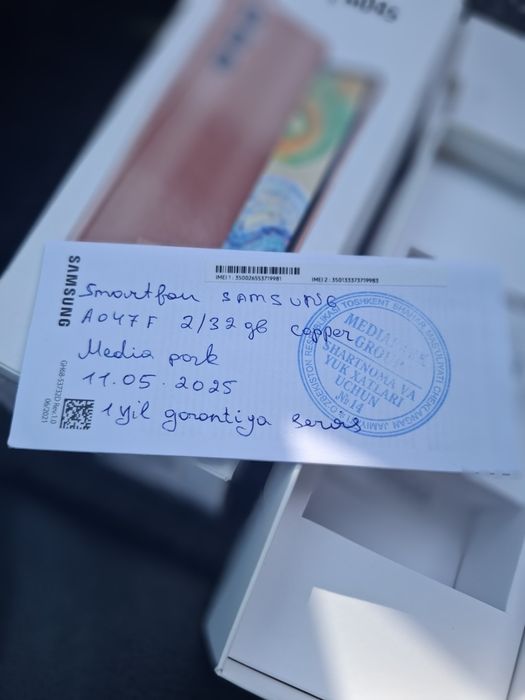 A04s
SAMSUNG
IMEI 1 : 350026553719981
IMEI 2 : 350133373719983
Smartfon SAMSUNG
A047F 2/32 gb copper
Media park
11.05.2025
1 yil garantiya servis
GH68-53732D Rev.1.0
06/2021
TOSHKENT SHAHAR
GROUP
SHARTNOMA VA
YUK XATLARI
UCHUN
№14